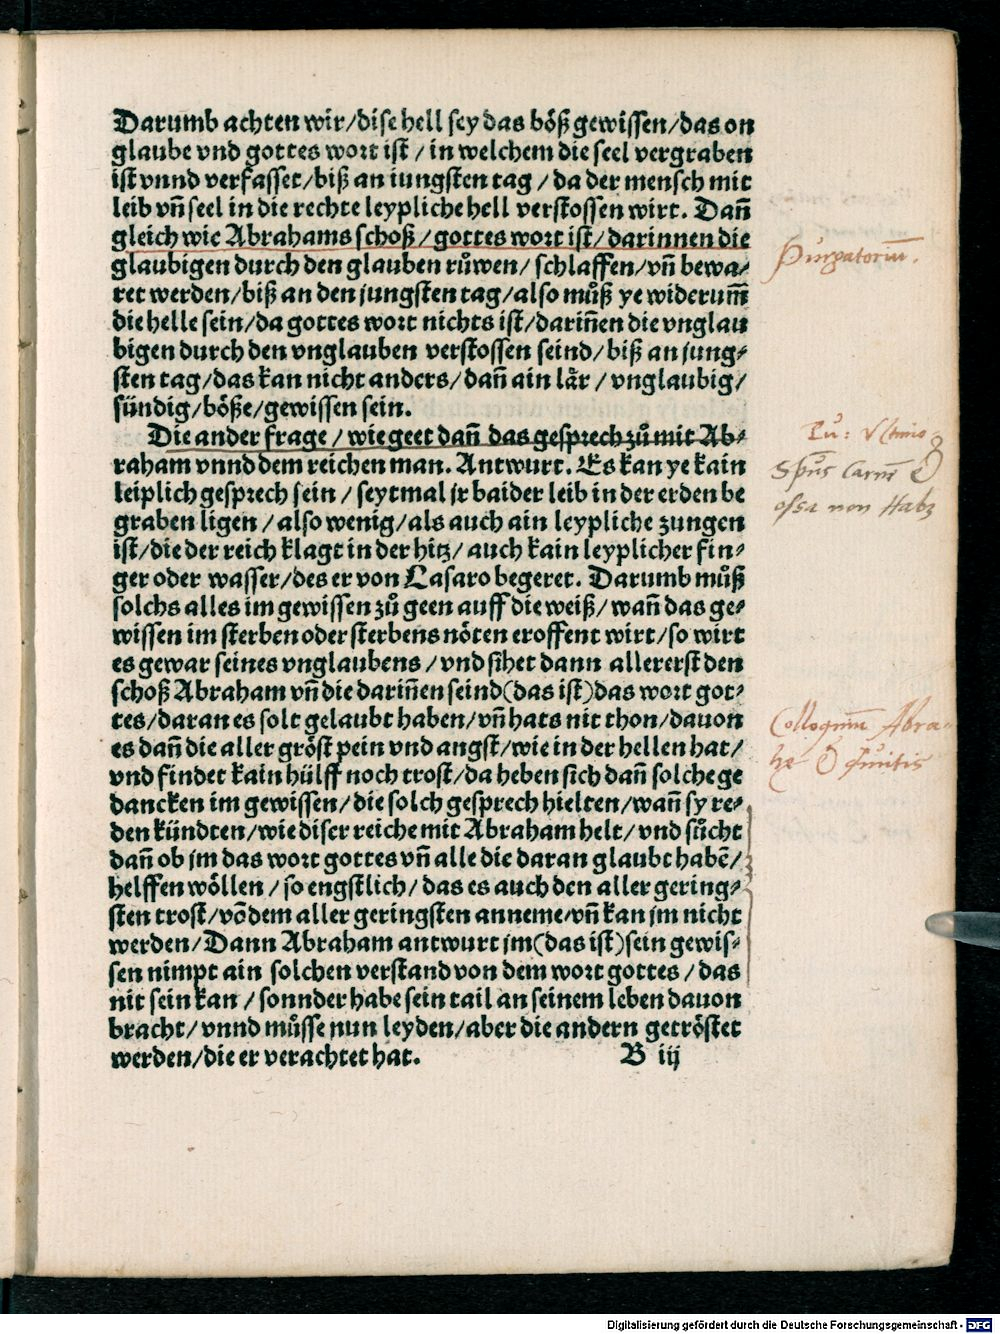 Darumb achten wir/dise hell sey das böß gewissen/das on
glaube vnd gottes wort ist/in welchem die seel vergraben
ist vnnd verfasset/biß an iungsten tag/da der mensch mit
leib vñ seel in die rechte leypliche hell verstossen wirt. Dañ
gleich wie Abrahams schoß/gottes wort ist/darinnen die
glaubigen durch den glauben růwen/schlaffen/vñ bewa-
ret werden/biß an den jungsten tag/also můß ye widerum̃
die helle sein/da gottes wort nichts ist/dariñen die vnglau
bigen durch den vnglauben verstossen seind/biß an jung-
sten tag/das kan nicht anders/dañ ain lår/vnglaubig/
sündig/böße/gewissen sein.
Die ander frage/wie geet dañ das gesprech zů mit Ab-
raham vnnd dem reichen man. Antwurt. Es kan ye kain
leiplich gesprech sein/seytmal jr baider leib in der erden be
graben ligen/also wenig/als auch ain leypliche zungen
ist/die der reich klagt in der hitz/auch kain leyplicher fin-
ger oder wasser/des er von Lasaro begeret. Darumb můß
solchs alles im gewissen zů geen auff die weiß/wañ das ge-
wissen im sterben oder sterbens nöten eroffent wirt/so wirt
es gewar seines vnglaubens/vnd sihet dann allererst den
schoß Abraham vñ die dariñen seind(das ist)das wort got-
tes/daran es solt gelaubt haben/vñ hats nit thon/dauon
es dañ die aller gröst pein vnd angst/wie in der hellen hat/
vnd findet kain hülff noch trost/da heben sich dañ solche ge
dancken im gewissen/die solch gesprech hielten/wañ sy re-
den kündten/wie diser reiche mit Abraham helt/vnd sůcht
dañ ob jm das wort gottes vñ alle die daran glaubt habẽ/
helffen wöllen/so engstlich/das es auch den aller gering-
sten trost/võ dem aller geringsten anneme/vñ kan jm nicht
werden/Dann Abraham antwurt jm(das ist)sein gewis-
sen nimpt ain solchen verstand von dem wort gottes/das
nit sein kan/sonnder habe sein tail an seinem leben dauon
bracht/vnnd můsse nun leyden/aber die andern getröstet
werden/die er verachtet hat.
B iij
Purgatoriũ.
ossa non Habz
Colloquiũ Abra-
Digitalisierung gefördert durch die Deutsche Forschungsgemeinschaft - DFG